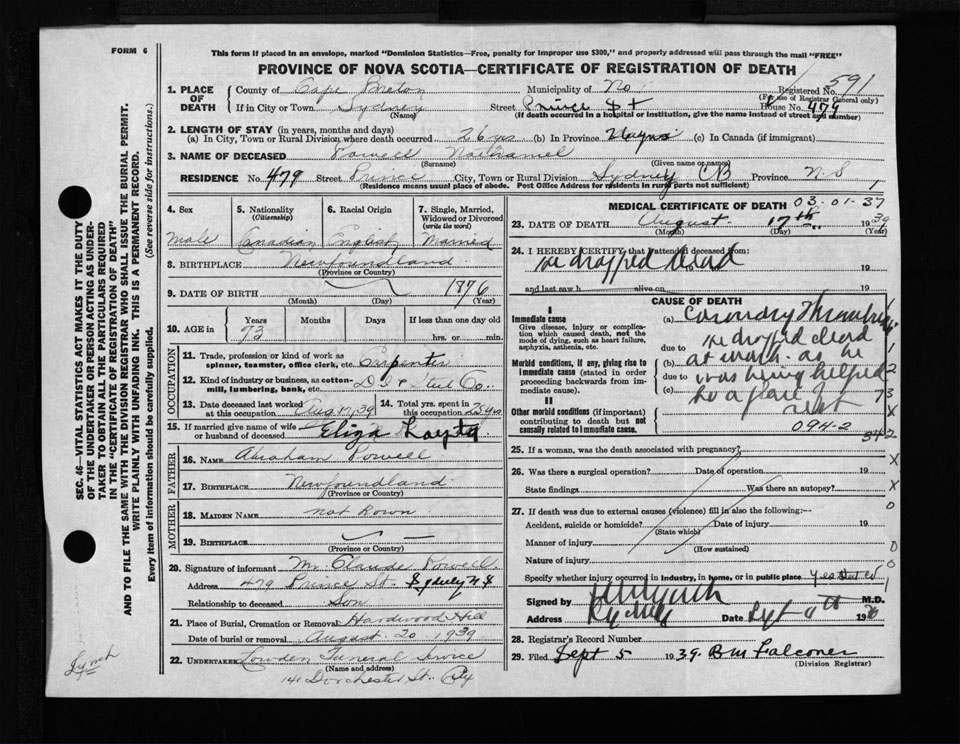 FORM 6
This form if placed in an envelope, marked "Dominion Statistics—Free, penalty for improper use $300," and properly addressed will pass through the mail "FREE"
PROVINCE OF NOVA SCOTIA—CERTIFICATE OF REGISTRATION OF DEATH
1. PLACE OF DEATH
County of Cape Breton Municipality of No Registered No. 591
(For use of Registrar General only)
If in City or Town Sydney Street Prince St House No. 479
(Name) (If death occurred in a hospital or institution, give name instead of street and number)
2. LENGTH OF STAY (in years, months and days)
(a) In City, Town or Rural Division where death occurred 26 yrs (b) In Province (c) In Canada (if immigrant)
3. NAME OF DECEASED Powell Nathaniel
(Surname) (Given name or names)
RESIDENCE No. 479 Street Prince City, Town or Rural Division Sydney CB Province N.S
(Residence means usual place of abode. Post Office Address for residents in rural parts not sufficient)
4. Sex 5. Nationality (Citizenship) 6. Racial Origin 7. Single, Married, Widowed or Divorced (write the word)
Male Canadian English Married
8. BIRTHPLACE Newfoundland
(Province or Country)
9. DATE OF BIRTH 1876
(Month) (Day) (Year)
10. AGE in Years Months Days If less than one day
73 hrs. or min.
OCCUPATION
11. Trade, profession or kind of work as spinner, teamster, office clerk, etc. Carpenter
12. Kind of industry or business, as cotton-mill, lumbering, bank, etc. D I & Steel Co.
13. Date deceased last worked at this occupation Aug 17/39 14. Total yrs. spent in this occupation
15. If married give name of wife or husband of deceased Eliza
FATHER
16. NAME Abraham Powell
17. BIRTHPLACE Newfoundland
(Province or Country)
MOTHER
18. MAIDEN NAME not Known
19. BIRTHPLACE
(Province or Country)
20. Signature of informant Mr Claude Powell
Address 479 Prince St. Sydney N S
Relationship to deceased Son
21. Place of Burial, Cremation or Removal Hardwood Hill
Date of burial or removal August 20 1939
22. UNDERTAKER Lowden Funeral Service
(Name and address)
141 Dorchester St.
MEDICAL CERTIFICATE OF DEATH 03-01-37
23. DATE OF DEATH August 17th 1939
(Month) (Day) (Year)
24. I HEREBY CERTIFY that I attended deceased from:
He dropped dead 19
and last saw h alive on 19
CAUSE OF DEATH
I
Immediate cause
Give disease, injury or complication which caused death, not the mode of dying, such as heart failure, asphyxia, asthenia, etc.
Morbid conditions, if any, giving rise to immediate cause (stated in order proceeding backwards from immediate cause).
II
Other morbid conditions (if important) contributing to death but not causally related to immediate cause.
(a) Coronary Thrombosis
due to He dropped dead
(b) at work as he
due to was being helped
(c) to a place of
rest
094-2
542
25. If a woman, was the death associated with pregnancy?
26. Was there a surgical operation? Date of operation 19
State findings Was there an autopsy?
27. If death was due to external causes (violence) fill in also the following:—
Accident, suicide or homicide? Date of injury 19
(State which)
Manner of injury
(How sustained)
Nature of injury
Specify whether injury occurred in industry, in home, or in public place
Signed by M.D.
Address Sydney Date
28. Registrar's Record Number
29. Filed Sept 5 1939. B M Falconer
(Division Registrar)
SEC. 46—VITAL STATISTICS ACT MAKES IT THE DUTY OF THE UNDERTAKER OR PERSON ACTING AS UNDERTAKER TO OBTAIN ALL THE PARTICULARS REQUIRED IN THE "CERTIFICATE OF REGISTRATION OF DEATH" AND TO FILE THE SAME WITH THE DIVISION REGISTRAR WHO SHALL ISSUE THE BURIAL PERMIT.
WRITE PLAINLY WITH UNFADING INK. THIS IS A PERMANENT RECORD.
Every item of information should be carefully supplied. (See reverse side for instructions.)
Lynch